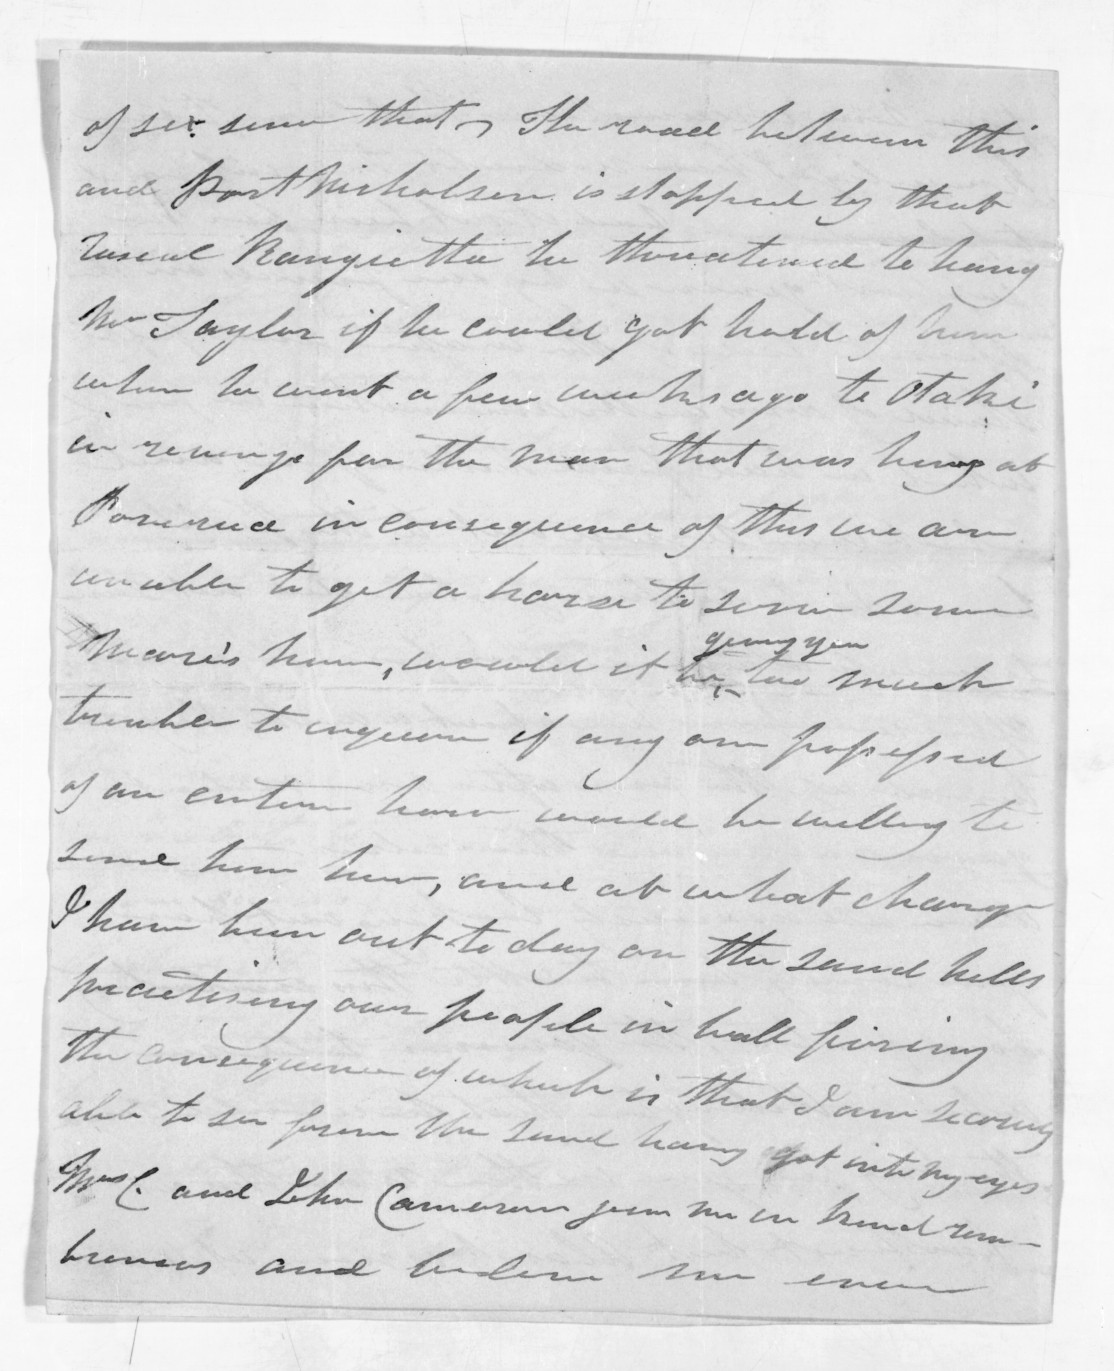 of six since that, The road between this
and Port Nicholson is stopped by that
rascal Rangietta he threatened to hang
Mr Taylor if he could get hold of him
when he went a few weeks ago to Otaki
in revenge for the man that was hung at
Poverrua in consequence of this we are
unable to get a horse to serve some
Mares here, would it be giving you too much
trouble to inquire if any one possessed
of an entire horse would be willing to
send him here, and at what charge
I have been out to day on the sand hills
practising our people in ball firing
the consequence of which is that I am scarcely
able to see from the sand having got into my eyes
Mrs C. and John Cameron join me in kind rem-
brances and believe me ever